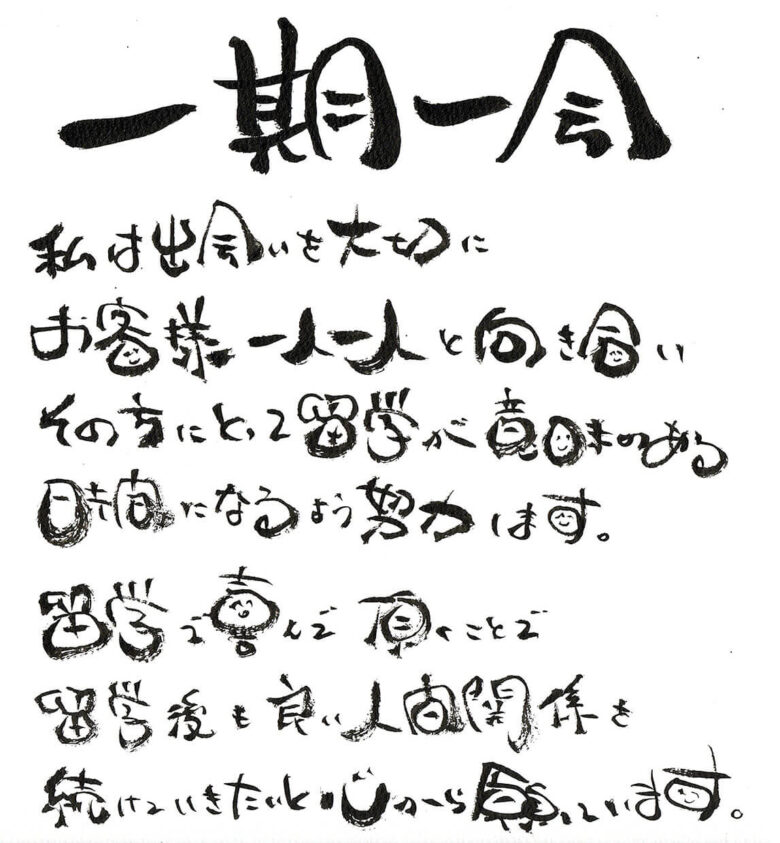 一期一会
私は出会いを大切に
お客様一人一人と向き合い
その方にとって留学が意味のある
時間になるよう努力します。
留学で喜んで頂くことで
留学後も良い人間関係を
続けていきたいと心から願っています。